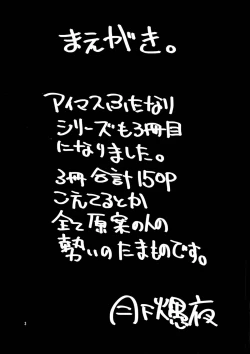 まえがき。
アイマスふたなり
シリーズも3冊目
になりました。
3冊合計150P
こえてるとか
全て原案の人の
勢いのたまものです。
月下愚夜
3